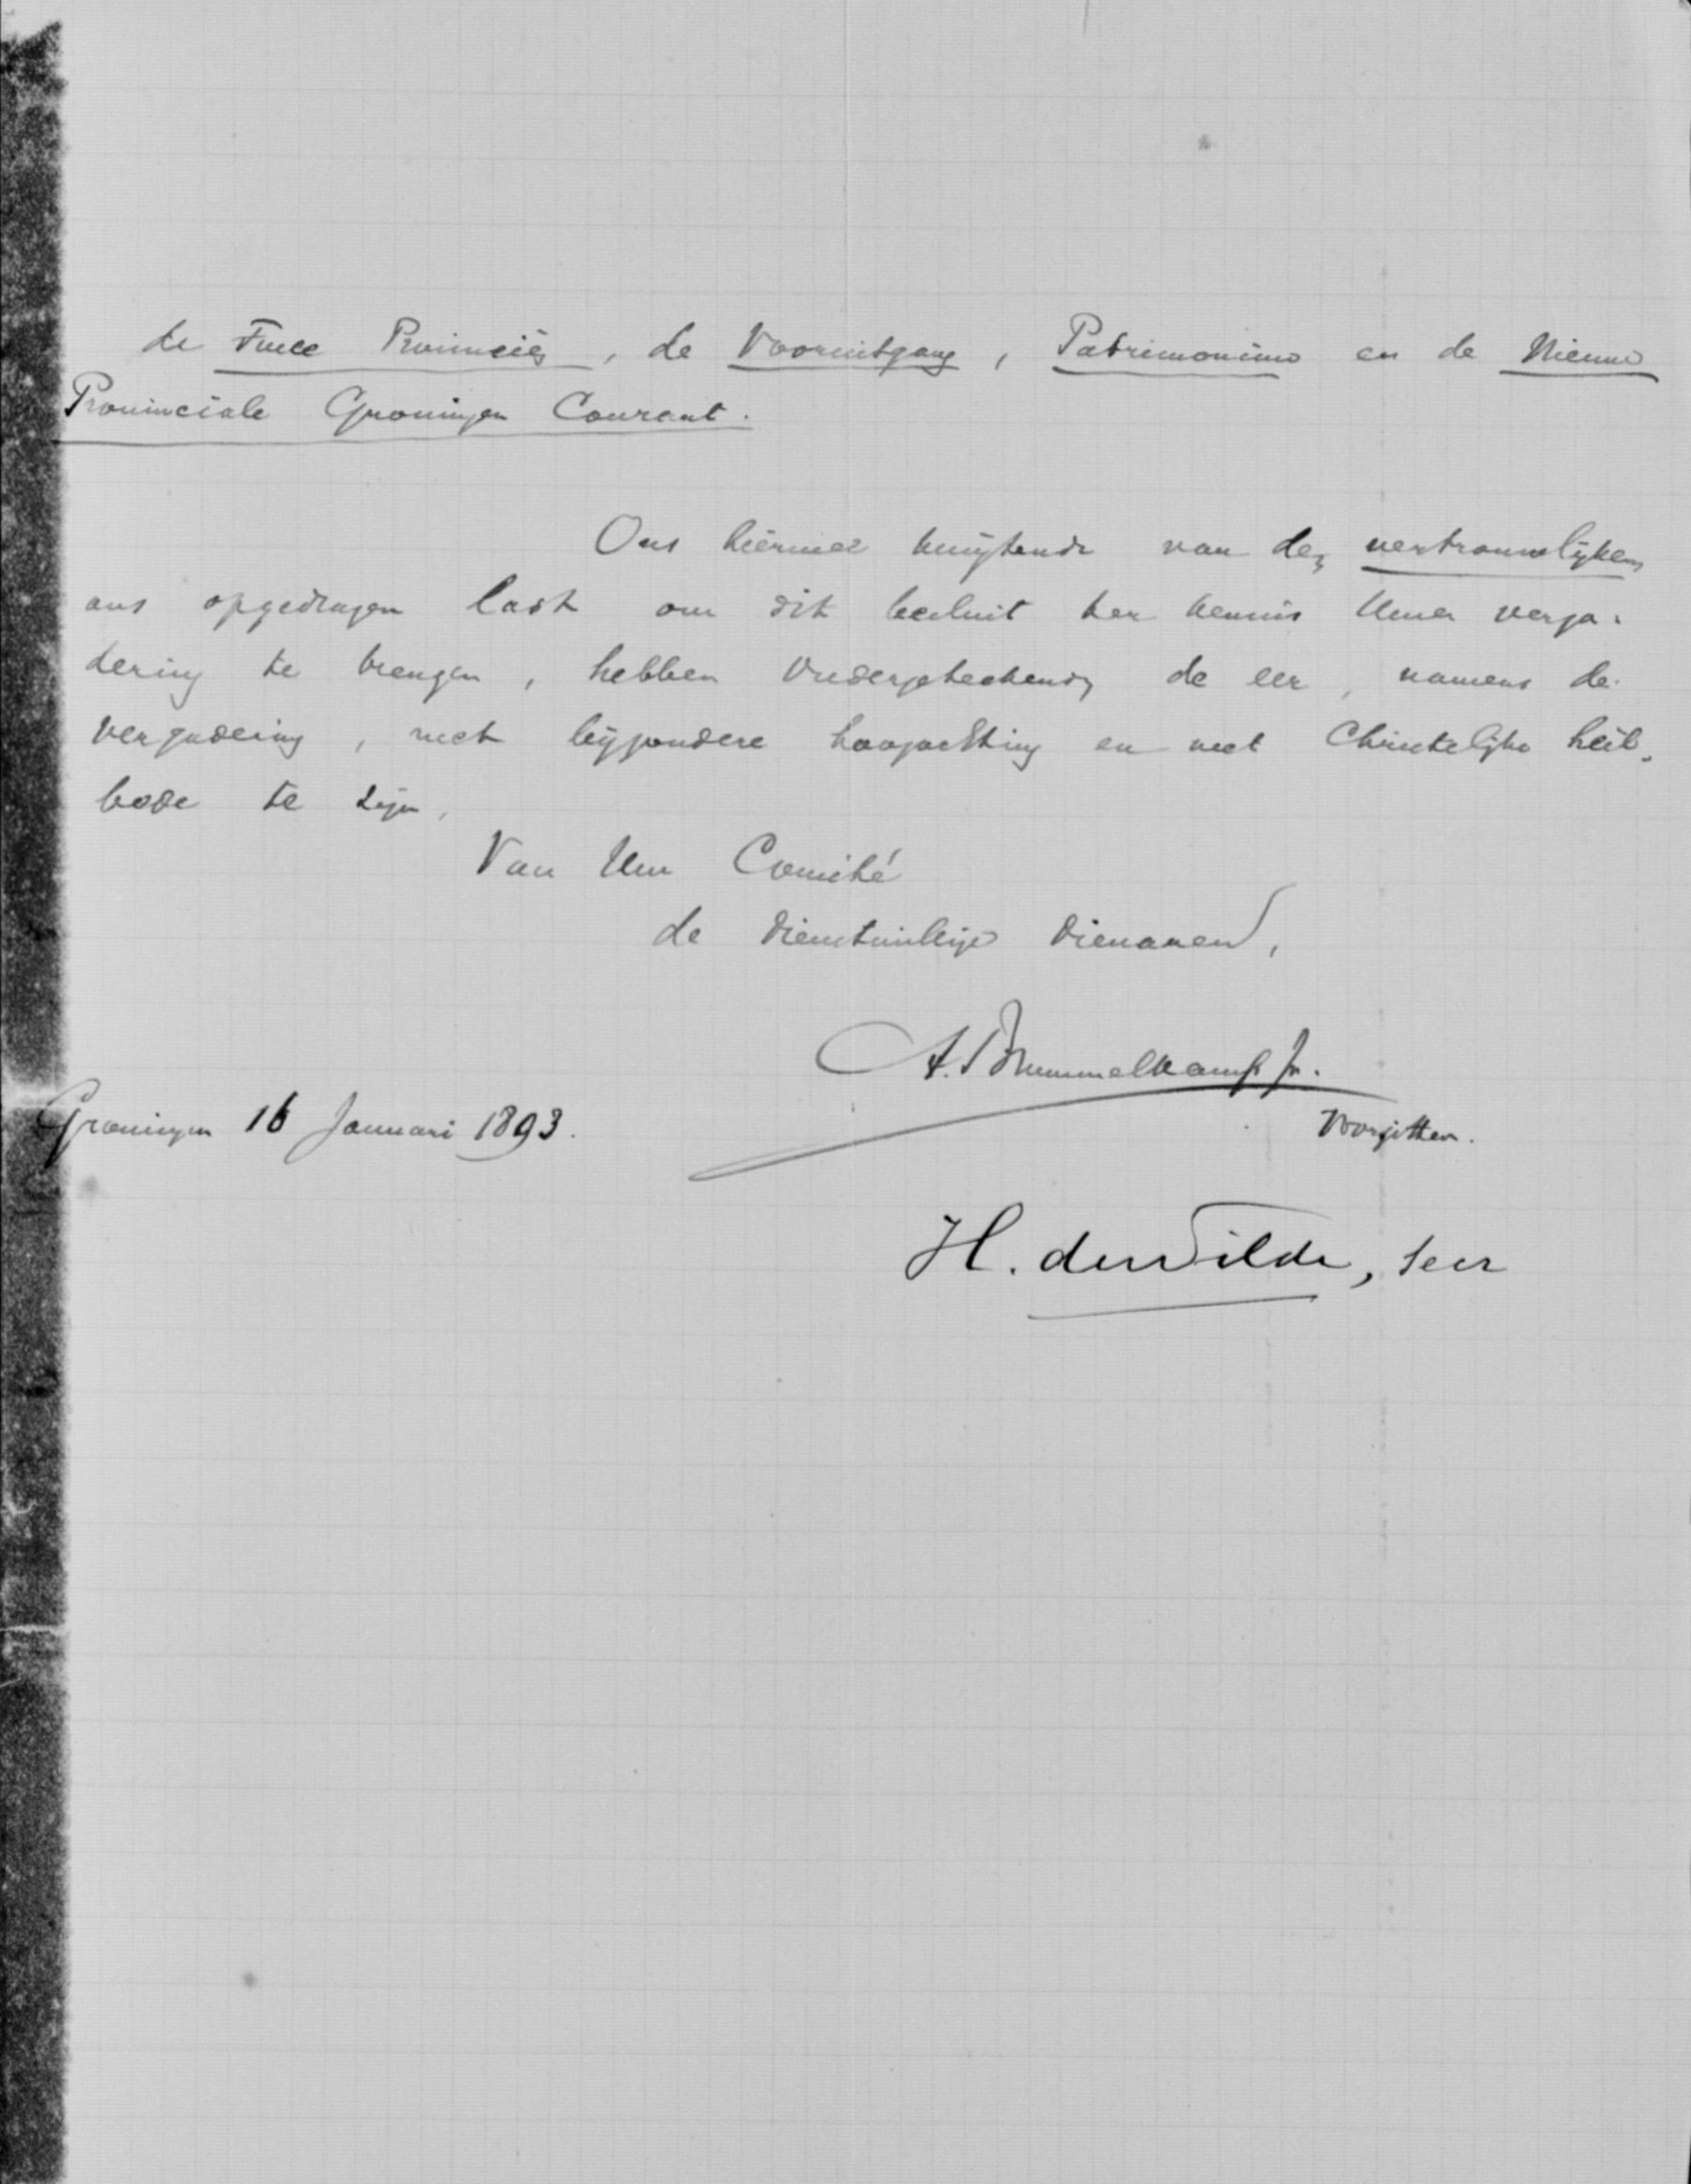 de Twee Provinciën, de Vooruitgang, Patrimonium en de Nieuwe
Provinciale Groninger Courant.
Ons hiermee kwijtende van den vertrouwelijken
ons opgedragen last om dit besluit ter kennis Uwer verga-
dering te brengen, hebben ondergeteekenden de eer, namens de
vergadering, met bijzondere hoogachting en met Christelijke heil-
bede te zijn,
Van Uw Comité
de dienstwillige dienaren,
A. Brummelkamp Jr.
Voorzitter.
Groningen 16 Januari 1893.
H. de Wilde, Secr